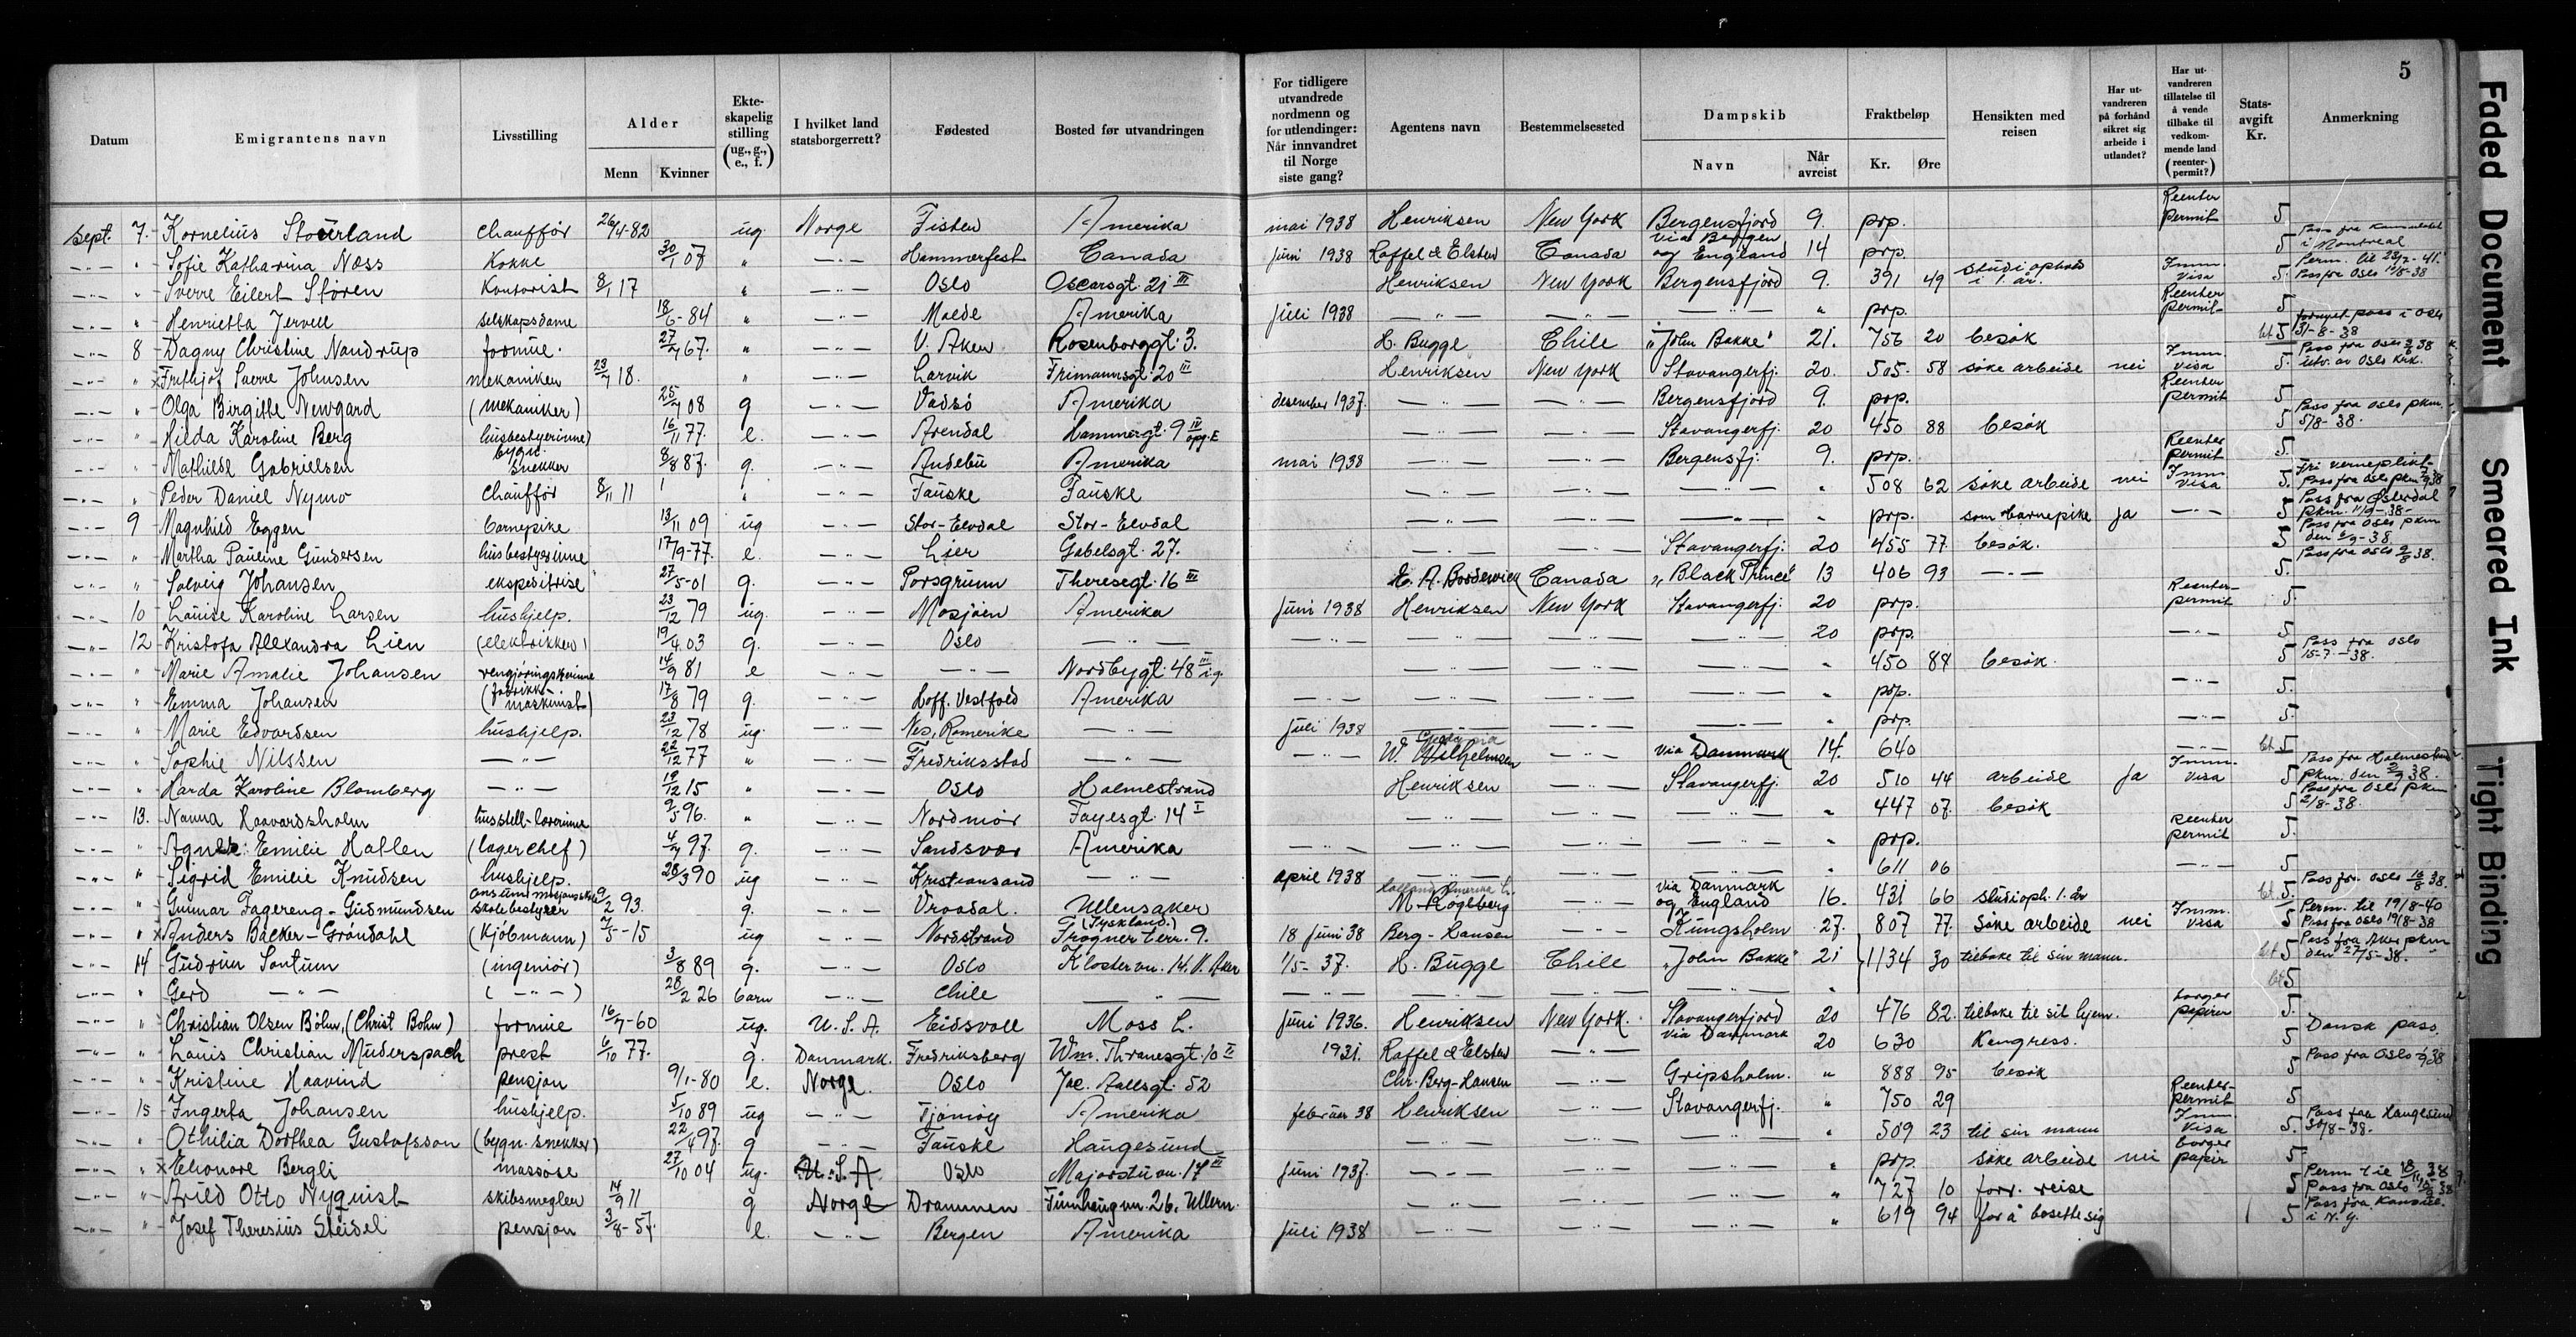 5
Datum | Emigrantens navn | Livsstilling | Alder Menn Kvinner | Ekteskapelig stilling (ug., g., e., f.) | I hvilket land statsborgerrett? | Fødested | Bosted før utvandringen | For tidligere utvandrede nordmenn og for utlendinger: Når innvandret til Norge siste gang? | Agentens navn | Bestemmelsessted | Dampskib Navn Når avreist | Fraktbeløp Kr. Øre | Hensikten med reisen | Har utvandreren på forhånd sikret sig arbeide i utlandet? | Har utvandreren tillatelse til å vende tilbake til vedkommende land (reenterpermit?) | Statsavgift Kr. | Anmerkning
sept. 7. Kornelius Stourland chaufför 26/4-82 ug Norge Fister Amerika mai 1938 Henriksen New York Bergensfjord 9. prp. Reenter permit 5
—"— " Sofie Katharina Næss Kokke 30/1 07 " —"— Hammerfest Canada juni 1938 Raffel & Elster Canada via Bergen og England 14 prp. 5 Pass fra Konsulatet i Montreal
—"— " Sverre Eilert Stören Kontorist 8/1 17 " —"— Oslo Oscarsgt. 21 III Henriksen New York Bergensfjord 9. 391 49 studieophold i 1. år. Imm. visa 5. Perm. til 23/2-41. Pass fra Oslo 11/8-38
—"— " Henrietta Jervell selskapsdame 18/6-84 " —"— Molde Amerika juli 1938 —"— —"— —"— " prp. Reenter permit 5
—"— 8 Dagny Christine Nandrup formue. 27/7 67. " —"— V. Aker Rosenborggt. 3. H. Bugge Chile "John Bakke" 21. 756 20 besök bt 5 fornyet pass i Oslo 31-8-38
—"— " x Frithjof Sverre Johnsen mekaniker 23/7 18. " —"— Larvik Frimannsgt. 20 III Henriksen New York Stavangerfj. 20. 505. 58 söke arbeide nei Imm. visa 5. Pass fra Oslo 2/9 38 utv. av Oslo Krk.
—"— " Olga Birgitte Newgard (mekaniker) 25/7 08 g —"— Vadsö Amerika desember 1937. —"— —"— Bergensfjord 9. prp. Reenter permit 5
—"— " Hilda Karoline Berg husbestyerinne) 16/11 77. e. —"— Arendal Hammergt. 9 IV opg. E —"— —"— Stavangerfj. 20 450 88 besök 5 Pass fra Oslo pkm. 5/8-38.
—"— " Mathilde Gabrielsen bygn. snekker 8/8 87. g. —"— Andebu Amerika mai 1938 —"— —"— Bergensfj. 9. prp. Reenter permit 5.
—"— " Peder Daniel Nymo chaufför 8/11 11 " —"— Fauske Fauske —"— —"— —"— " 508 62 söke arbeide nei Imm. visa 5. Fri verneplikt Pass fra Oslo pkm 7/9 38
—"— 9 Magnhild Eggen barnepike 13/11 09 ug —"— Stor-Elvdal Stor-Elvdal —"— —"— —"— " prp. som barnepike ja —"— 5 Pass fra Østerdal pkm. 11/9-38-
—"— " Martha Pauline Gundersen husbestyerinne 17/9-77. e. —"— Lier Gabelsgt. 27. —"— —"— Stavangerfj. 20 455 77. besök. 5 Pass fra Oslo pkm den 2/9-38
—"— " Solveig Johansen ekspeditrise 27/5-01 g. —"— Porsgrunn Theresegt. 16 III E. A. Bordewick Canada "Black Prince" 13 406 93 —"— 5. Pass fra Oslo 9/8 38.
—"— 10 Louise Karoline Larsen hushjelp. 23/12 79 ug. —"— Mosjöen Amerika juni 1938 Henriksen New York Stavangerfj. 20 prp. Reenter-permit 5
—"— 12 Kristofa Alexandra Lien (elektriker) 19/4 03 g. —"— Oslo —"— —"— —"— —"— —"— 20 prp. —"— 5
—"— " Marie Amalie Johansen rengjöringskvinne 14/9 81 e —"— —"— Nordbygt. 48 III i.g. —"— —"— —"— " 450 88 besök. 5 Pass fra Oslo 15-7-38.
—"— " Emma Johansen (fabrikk-maskinist) 17/8 79 g. —"— Hoff. Vestfold Amerika —"— —"— —"— —"— " prp. —"— 5.
—"— " Marie Edvardsen hushjelp. 23/12 78 ug. —"— Nes, Romerike —"— juli 1938 —"— —"— —"— " prp. —"— 5.
—"— " Sophie Nilssen —"— 22/12 77 " —"— Fredriksstad —"— —"— W. Wilhelmsen —"— via Danmark 14. 640 —"— bt 5
—"— " Harda Karoline Blomberg —"— 19/12 15 " —"— Oslo Holmestrand Henriksen —"— Stavangerfj. 20 510 44 arbeide ja Imm. visa 5 Pass fra Holmestrand pkm. den 2/9 38.
—"— 13. Nanna Haavardsholm husstell-lærerinne 9/5 96. " —"— Nordmör Fayesgt. 14 I —"— —"— —"— " 447 07. besök 5 Pass fra Oslo pkm 2/8-38.
—"— " Agnete Emilie Hatlen (lagerchef) 4/7 97. g. —"— Sandsvær Amerika —"— —"— —"— —"— " prp. Reenter permit 5.
—"— " Sigrid Emilie Knudsen hushjelp. 28/3 90 ug —"— Kristiansand —"— april 1938 —"— —"— —"— " 611 06 —"— 5
—"— " Gunnar Fagereng-Gudmundsen skolebestyrer 9/2 93. g. —"— Vraadal. Ullensaker Holland Amerika L. M. Rögeberg —"— via Danmark og England 16. 431 66 studieoph. 1. år bt. 5. Pass fra Oslo 16/8 38.
—"— " x Anders Bäcker-Gröndahl (kjöbmann) 7/5-15 ug —"— Nordstrand (Tyskland.) Frogner terr. 9. 18 juni 38 Berg-Hansen —"— Kungsholm 27. 807 77. Söke arbeide nei Imm. visa 5 Perm. til 19/8-40 Pass fra Oslo 19/8-38
—"— 14 Gudrun Sontum (ingeniör) 3/8 89 g. —"— Oslo Klostervn. 14. V. Aker 1/5-37. H. Bugge Chile "John Bakke" 21 1134 30 tilbake til sin mann. bt 5 Pass fra Aker pkm den 27/5-38.
—"— " Gerd —"— (—"—) 28/2 26 barn —"— Chile —"— —"— —"— —"— —"— " bt 5
—"— " Christian Olsen Böhn, (Christ Bohn) formue 16/7-60 ug. U. S. A. Eidsvoll Moss L. juni 1936. Henriksen New York. Stavangerfjord 20 476 82. tilbake til sit hjem. borger papirer 5.
—"— " Louis Christian Muderspach prest 6/10 77. g. Danmark. Fredriksberg Wm. Thranesgt. 10 II 1931. Raffel & Elster —"— via Danmark 20 630 Kongress. 5 Dansk pass.
—"— " Kristine Haavind pensjon 9/1-80 e. Norge. Oslo Jac. Aallsgt. 52 Chr. Berg-Hansen —"— Gripsholm. " 888 95 besök 5 Pass fra Oslo 1/9 38
—"— 15 Ingerta Johansen hushjelp. 5/10 89 ug —"— Tjömöy Amerika februar 38 Henriksen —"— Stavangerfj. " 750 29 Reenter-permit 5
—"— " Othilia Dorthea Gustafsson (bygn. snekker) 22/4 97. g —"— Fauske Haugesund —"— —"— —"— " 509 23 til sin mann Imm. visa 5. Pass fra Haugesund 30/8-38.
—"— " x Elionore Bergli massöse 27/10 04 ug. U. S. A Oslo Majorstuvn. 17 III juni 1937. —"— —"— —"— " prp. söke arbeide nei borger papir 5
—"— " Arild Otto Nyquist skibsmegler 14/9 11 g Norge Drammen Furuhaugvn. 26, Ullern. —"— —"— —"— " 727 10 forr. reise 5 Perm til 18/11 38 Pass fra Oslo
—"— " Josef Theresius Steidel pensjon 3/8-57. e. —"— Bergen Amerika juli 1938 —"— —"— —"— " 619 94 for å bosette sig 5 Pass fra Konsul. i N. Y.
Faded Document
Smeared Ink
Tight Binding